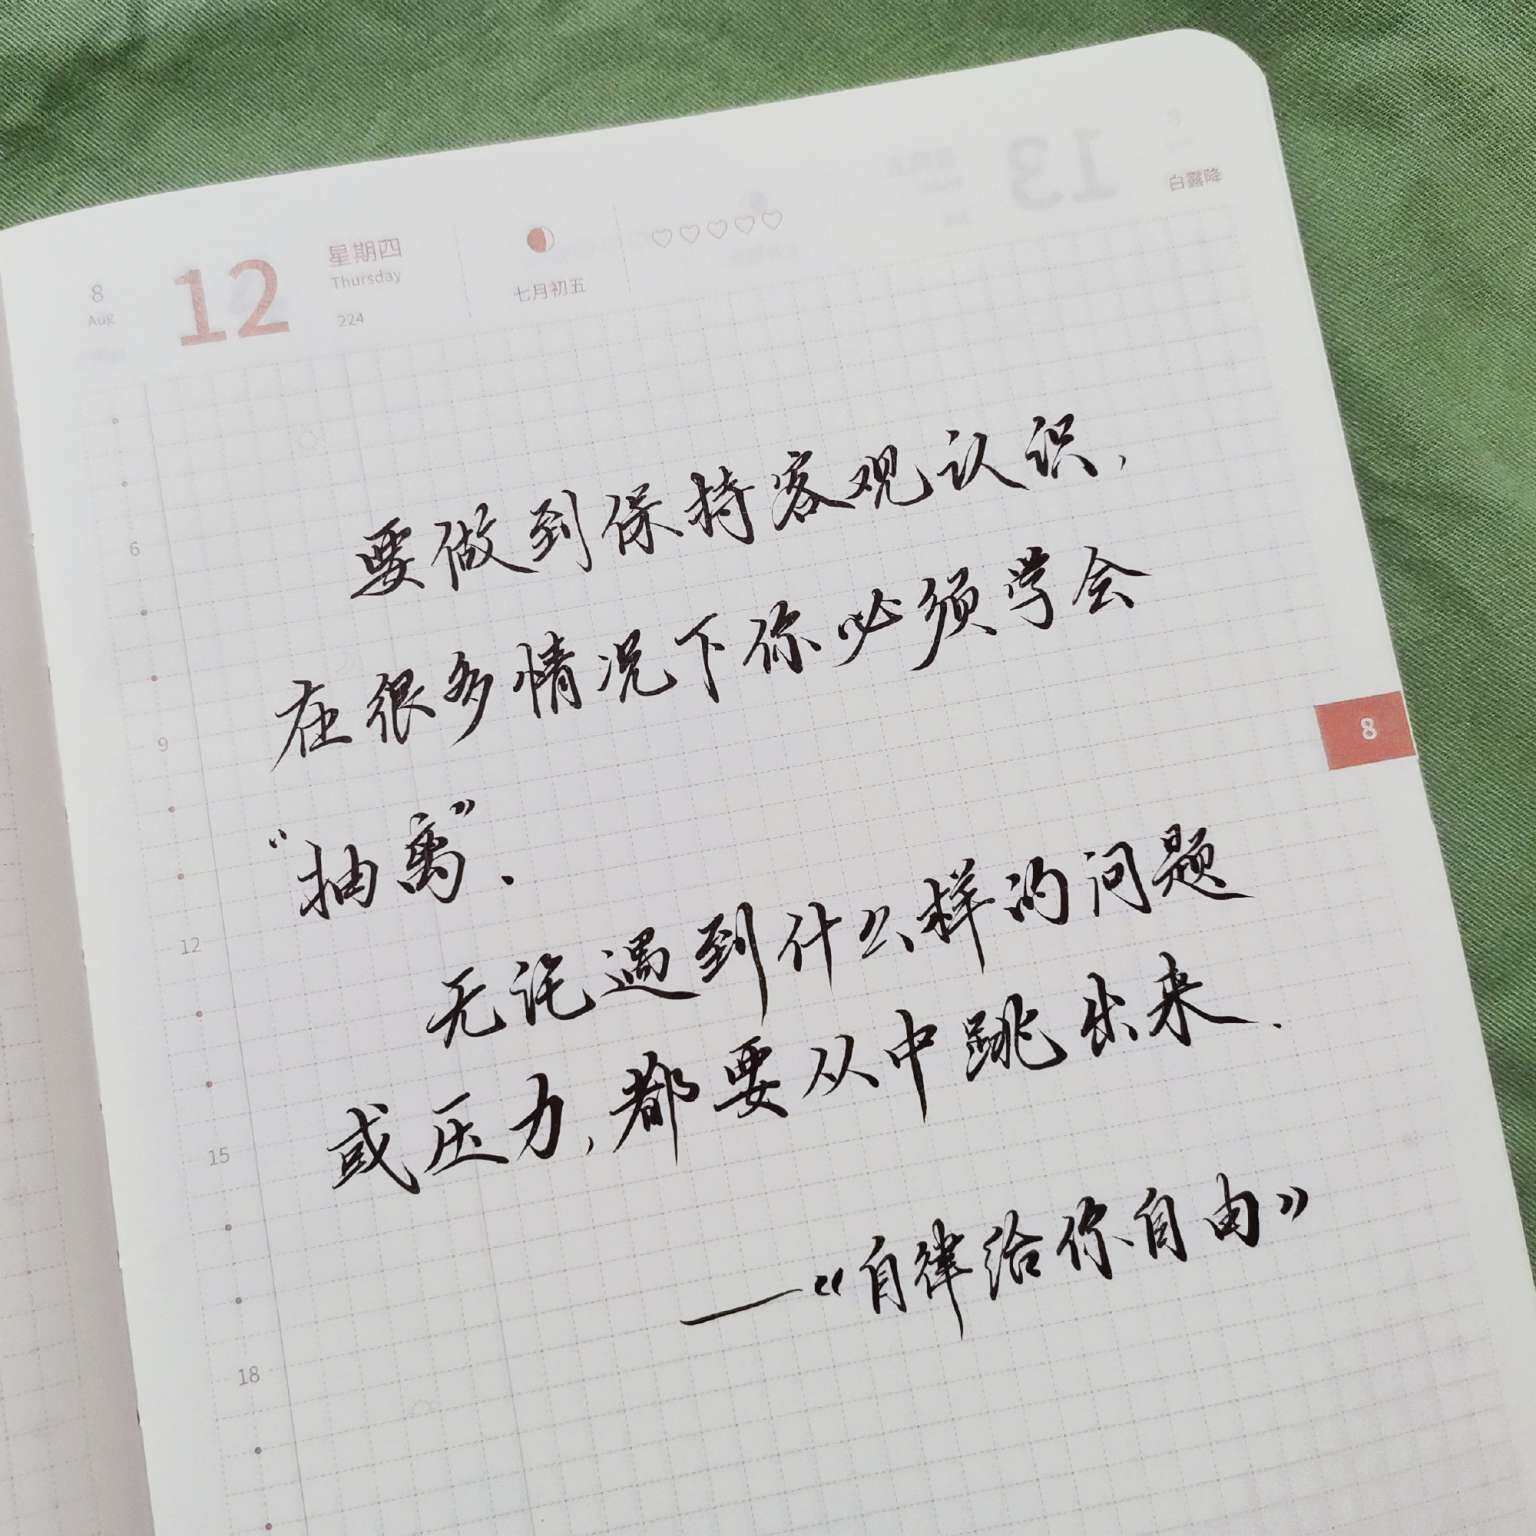 8
Aug
12
星期四
Thursday
224
七月初五
♡♡♡♡♡
白露降
要做到保持客观认识，
在很多情况下你必须学会
“抽离”．
无论遇到什么样的问题
或压力，都要从中跳出来．
——《自律给你自由》
6
9
12
15
18
8